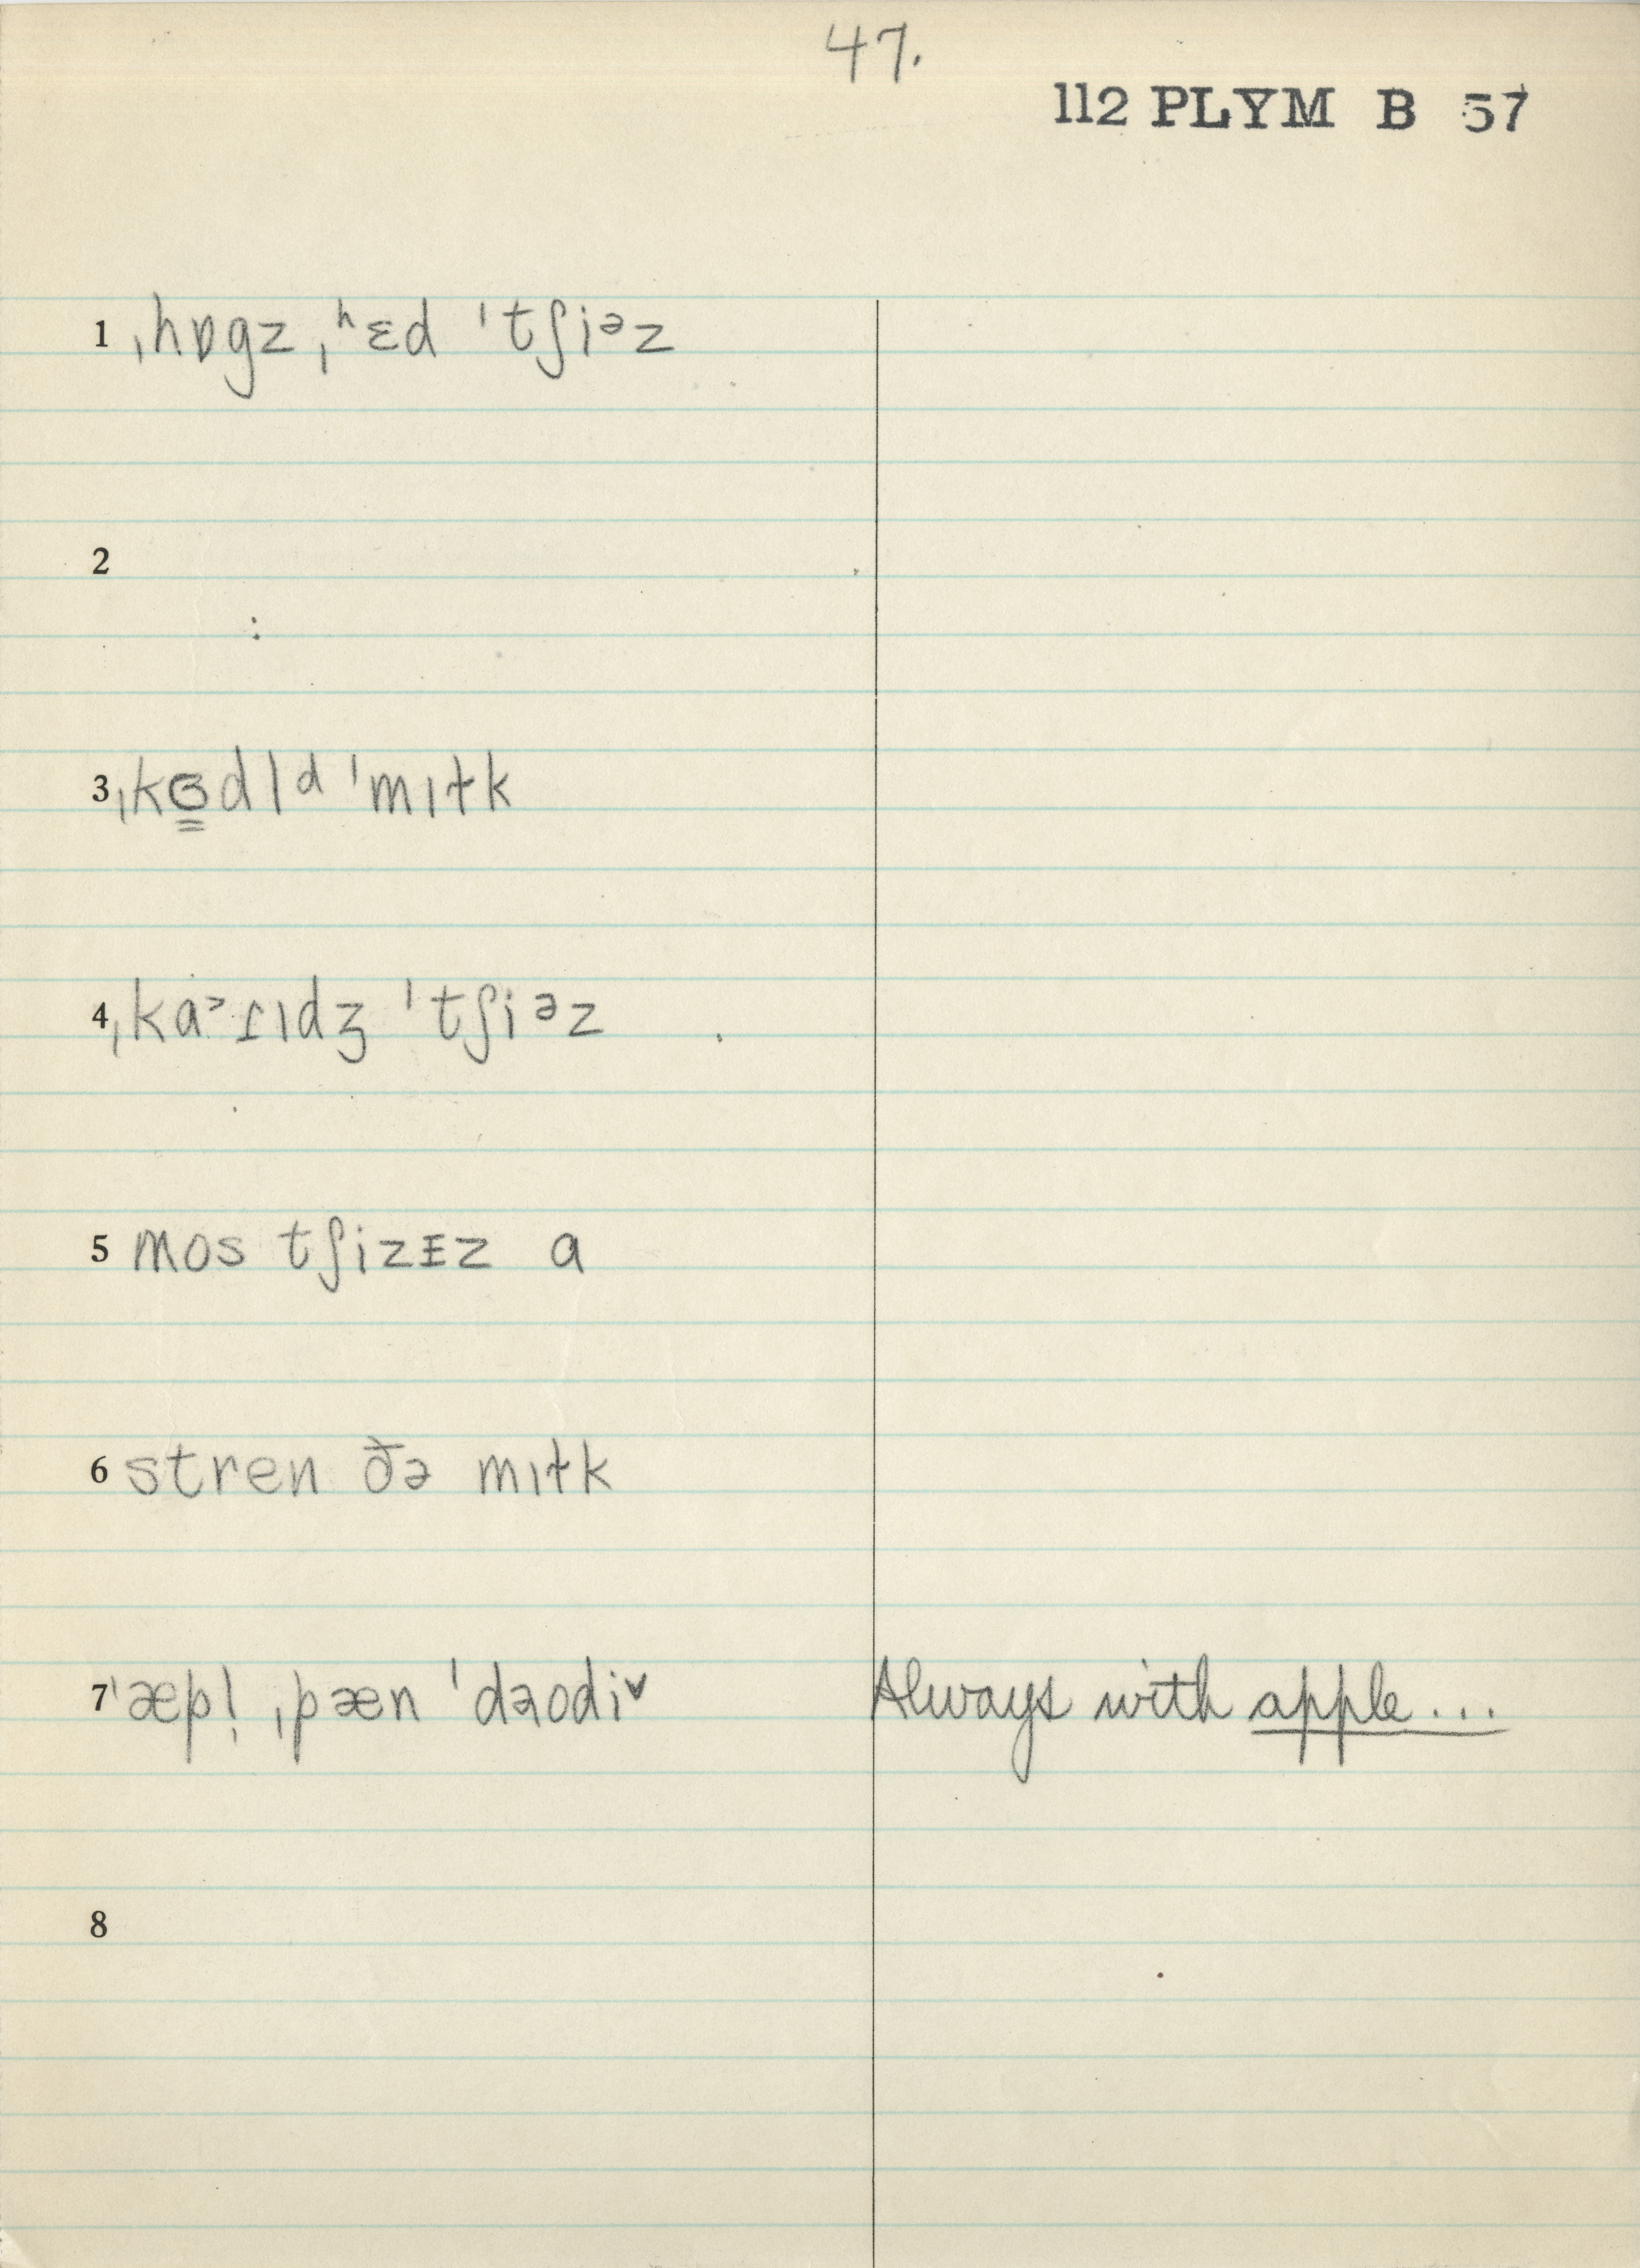 47.
112 PLYM B 57
1 ˌhɒgz ˌʰɛd ˈtʃiᵊz
2
3 ˌkɞ̳dl ᵈ ˈmɪɫk
4 ˌkaᵊɹɪdʒ ˈtʃiᵊz
5 mos tʃizᵻz a
6 stren ðə mɪɫk
7 ˈæpl̩ ˌpæn ˈdaodi˅ Always with apple...
8